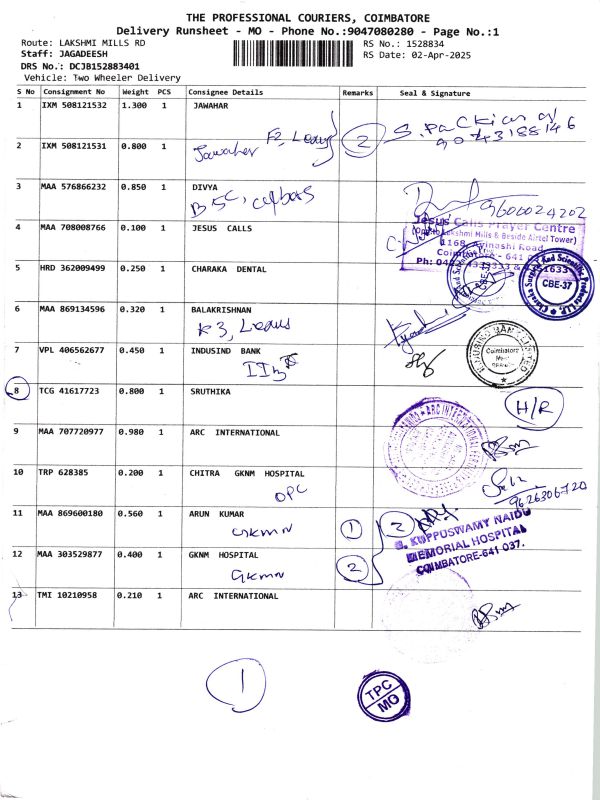 THE PROFESSIONAL COURIERS, COIMBATORE
Delivery Runsheet - MO - Phone No.:9047080280 - Page No.:1
Route: LAKSHMI MILLS RD
RS No.: 1528834
Staff: JAGADEESH
RS Date: 02-Apr-2025
DRS No.: DCJB152883401
Vehicle: Two Wheeler Delivery
S No Consignment No Weight PCS Consignee Details Remarks Seal & Signature
1 IXM 508121532 1.300 1 JAWAHAR
2
S. Packiaraj
9043188146
2 IXM 508121531 0.800 1
Jawaher F2, Leaus
3 MAA 576866232 0.850 1 DIVYA
BSC,
9600024202
4 MAA 708008766 0.100 1 JESUS CALLS
Jesus Calls Prayer Centre
(Opp to Lakshmi Mills & Beside Airtel Tower)
1168, Avinashi Road,
Coimbatore - 641
5 HRD 362009499 0.250 1 CHARAKA DENTAL
Charaka Surgical And Scientific Products LLP.
CBE-37
6 MAA 869134596 0.320 1 BALAKRISHNAN
K3, Leaus
7 VPL 406562677 0.450 1 INDUSIND BANK
Coimbatore
8 TCG 41617723 0.800 1 SRUTHIKA
H/R
9 MAA 707720977 0.980 1 ARC INTERNATIONAL
ARC INTERNATIONAL
10 TRP 628385 0.200 1 CHITRA GKNM HOSPITAL
OPC
9626306720
11 MAA 869600180 0.560 1 ARUN KUMAR
GKMN
1
2
G. KUPPUSWAMY NAIDU
MEMORIAL HOSPITAL
COIMBATORE-641 037.
12 MAA 303529877 0.400 1 GKNM HOSPITAL
GKMN
2
13 TMI 10210958 0.210 1 ARC INTERNATIONAL
1
TPC
MO